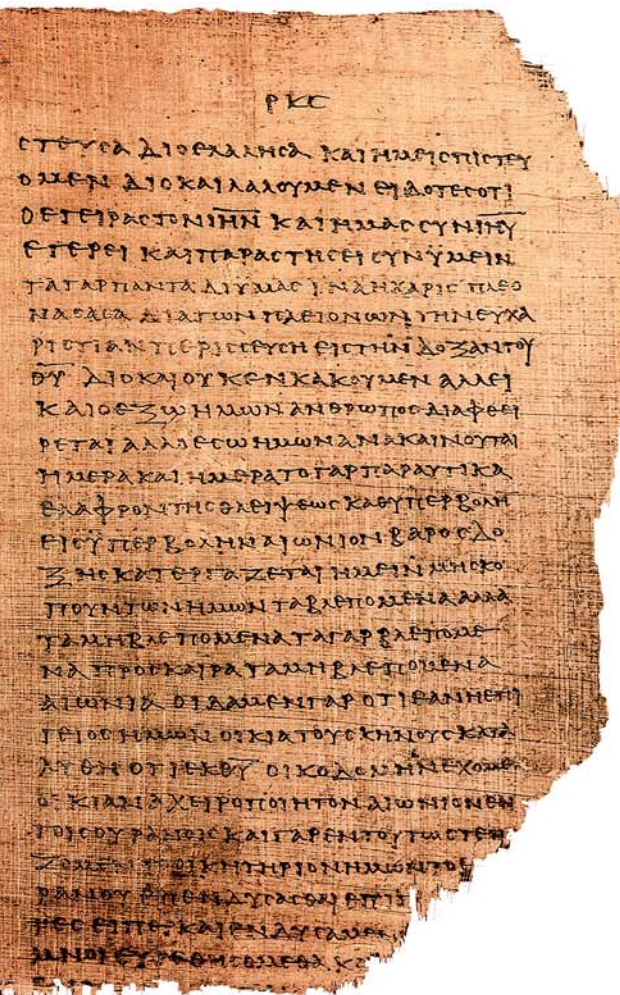 ΡΚϚ
ΣΤΕΥΣΑ ΔΙΟ ΕΛΑΛΗΣΑ ΚΑΙ ΗΜΕΙΣ ΠΙΣΤΕΥ
ΟΜΕΝ ΔΙΟ ΚΑΙ ΛΑΛΟΥΜΕΝ ΕΙΔΟΤΕΣ ΟΤΙ
Ο ΕΓΕΙΡΑΣ ΤΟΝ ΙΗ̅Ν̅ ΚΑΙ ΗΜΑΣ ΣΥΝ ΙΗ̅Υ̅
ΕΓΕΡΕΙ ΚΑΙ ΠΑΡΑΣΤΗΣΕΙ ΣΥΝ ΥΜΕΙΝ
ΤΑ ΓΑΡ ΠΑΝΤΑ ΔΙ ΥΜΑΣ ΙΝΑ Η ΧΑΡΙΣ ΠΛΕΟ
ΝΑΣΑΣΑ ΔΙΑ ΤΩΝ ΠΛΕΙΟΝΩΝ ΤΗΝ ΕΥΧΑ
ΡΙΣΤΙΑΝ ΠΕΡΙΣΣΕΥΣΗ ΕΙΣ ΤΗΝ ΔΟΞΑΝ ΤΟΥ
Θ̅Υ̅ ΔΙΟ ΚΑΙ ΟΥΚ ΕΝΚΑΚΟΥΜΕΝ ΑΛΛ ΕΙ
ΚΑΙ Ο ΕΞΩ ΗΜΩΝ ΑΝΘΡΩΠΟΣ ΔΙΑΦΘΕΙ
ΡΕΤΑΙ ΑΛΛ Ο ΕΣΩ ΗΜΩΝ ΑΝΑΚΑΙΝΟΥΤΑΙ
ΗΜΕΡΑ ΚΑΙ ΗΜΕΡΑ ΤΟ ΓΑΡ ΠΑΡΑΥΤΙΚΑ
ΕΛΑΦΡΟΝ ΤΗΣ ΘΛΕΙΨΕΩΣ ΚΑΘ ΥΠΕΡΒΟΛΗ
ΕΙΣ ΥΠΕΡΒΟΛΗΝ ΑΙΩΝΙΟΝ ΒΑΡΟΣ ΔΟ
ΞΗΣ ΚΑΤΕΡΓΑΖΕΤΑΙ ΗΜΕΙΝ ΜΗ ΣΚΟ
ΠΟΥΝΤΩΝ ΗΜΩΝ ΤΑ ΒΛΕΠΟΜΕΝΑ ΑΛΛΑ
ΤΑ ΜΗ ΒΛΕΠΟΜΕΝΑ ΤΑ ΓΑΡ ΒΛΕΠΟΜΕ
ΝΑ ΠΡΟΣΚΑΙΡΑ ΤΑ ΜΗ ΒΛΕΠΟΜΕΝΑ
ΑΙΩΝΙΑ ΟΙΔΑΜΕΝ ΓΑΡ ΟΤΙ ΕΑΝ Η ΕΠΙ
ΓΕΙΟΣ ΗΜΩΝ ΟΙΚΙΑ ΤΟΥ ΣΚΗΝΟΥΣ ΚΑΤΑ
ΛΥΘΗ ΟΤΙ ΕΚ Θ̅Υ̅ ΟΙΚΟΔΟΜΗΝ ΕΧΟΜΕΝ
ΟΙΚΙΑΝ ΑΧΕΙΡΟΠΟΙΗΤΟΝ ΑΙΩΝΙΟΝ ΕΝ
ΤΟΙΣ ΟΥΡΑΝΟΙΣ ΚΑΙ ΓΑΡ ΕΝ ΤΟΥΤΩ ΣΤΕΝ
ΖΟΜΕΝ ΤΟ ΟΙΚΗΤΗΡΙΟΝ ΗΜΩΝ ΤΟ
ΡΑΝΟΥ ΕΠΕΝΔΥΣΑΣΘΑΙ ΕΠΙ
ΤΕΣ ΕΙΠΕΡ ΚΑΙ ΕΝΔΥΣΑΜΕΝ
ΜΝΟΙ ΕΥΡΕΘΗΣΟΜΕΘΑ Κ